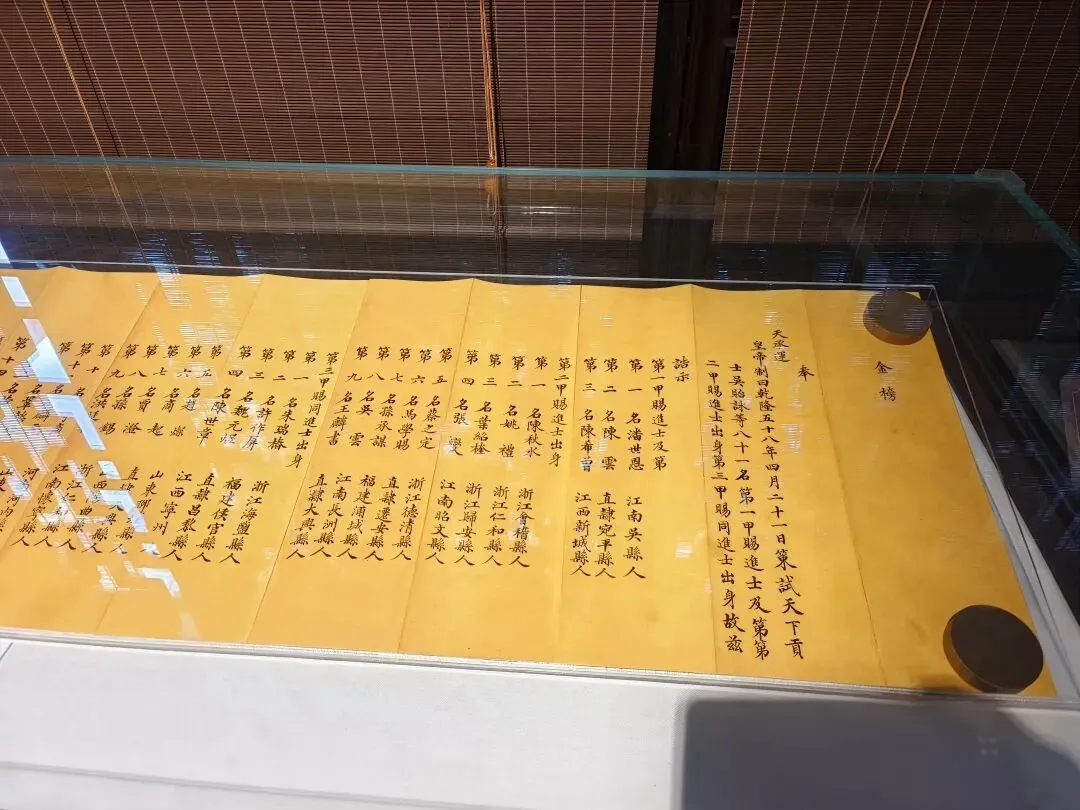 金榜
奉
天承運
皇帝制曰乾隆五十八年四月二十一日策試天下貢
士吳貽詠等八十一名第一甲賜進士及第第
二甲賜進士出身第三甲賜同進士出身故茲
誥示
第一甲賜進士及第
第一名潘世恩 江南吳縣人
第二名陳雲 直隸宛平縣人
第三名陳希曾 江西新城縣人
第二甲賜進士出身
第一名陳秋水 浙江會稽縣人
第二名姚禮 浙江仁和縣人
第三名葉紹楏 浙江歸安縣人
第四名張燮 江南昭文縣人
第五名蔡之定 浙江德清縣人
第六名馬學賜 直隸遷安縣人
第七名孫承謀 福建浦城縣人
第八名吳雲 江南長洲縣人
第九名王麟書 直隸大興縣人
第三甲賜同進士出身
第一名朱瑞椿 浙江海鹽縣人
第二名許作屏 福建侯官縣人
第三名魏元煜 直隸昌黎縣人
第四名陳世章 江西寧州人
第五名趙
第六名商
第七名賈起
第八名孫澄
第九
第十